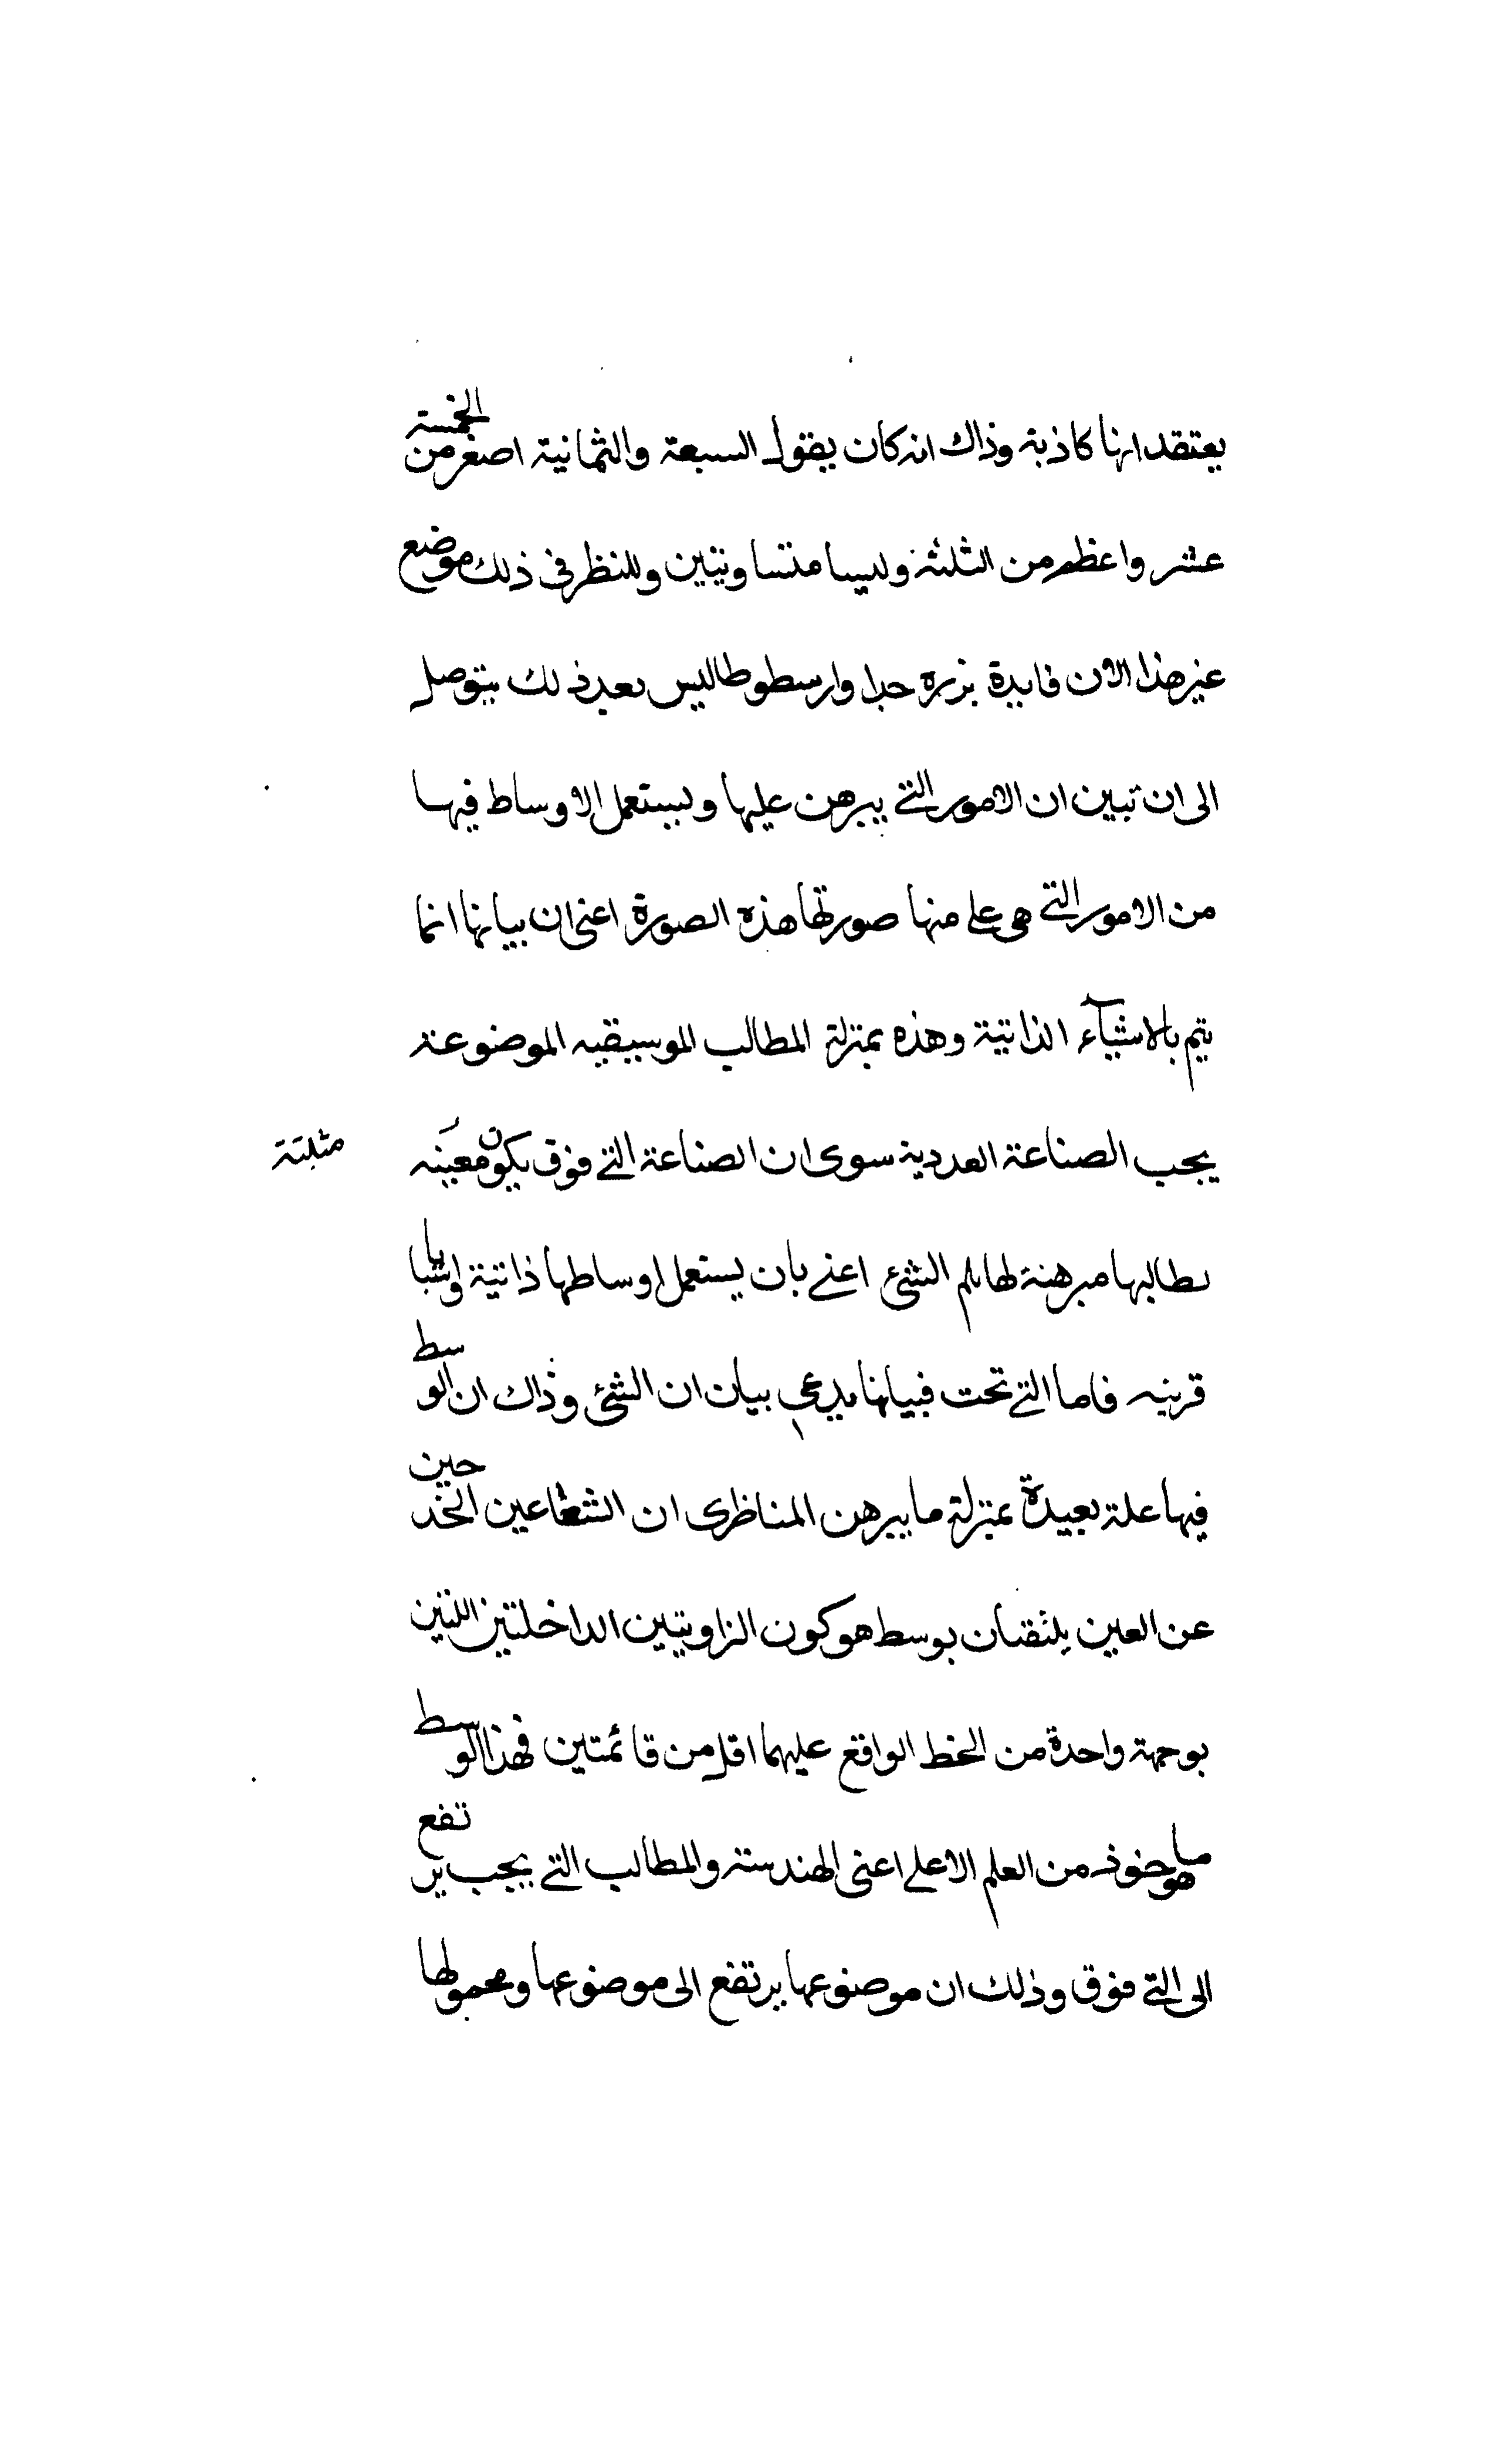 يعتقد انها كاذبة وذاك انه كان يقول السبعة والثمانية اصغر من الخمسة
عشر واعظم من الثلثة وليسا متساويتين وللنظر في ذلك موضع
غير هذا الان فايدة نزرة جدا وارسطوطاليس بعد ذلك يتوصل
الى ان تبين ان الامور التي يبرهن عليها ويستعمل الاوساط فيها
من الامور التي هي على منها صورتها هذه الصورة اعنى ان بيانها انما
يتم بالاشيآء الذاتية وهذه بمنزلة المطالب الموسيقيه الموضوعة
يحب الصناعة العددية سوى ان الصناعة التي فوق يكون معينه
مثبتة
مطالبها مبرهنة لها بلم الشئ اعنى بان يستعمل اوساطها ذاتية واشيا
قريبه فاما التي تحت فبيانها يدعى بيان ان الشئ وذاك ان الوسط
فيها علة بعيدة بمنزلة ما يبرهن المناظرى ان الشعاعين الخارجين
عن العين يلتقيان بوسط هو كون الزاويتين الداخلتين اللتين
بوجهة واحدة من الخط الواقع عليهما اقل من قائمتين فهذا الوسط
هو ماخوذ من العلم الاعلى اعنى الهندسة والمطالب التي يجب يرتفع
الى التي فوق وذلك ان موضوعها يرتفع الى موضوعها ومحمولها